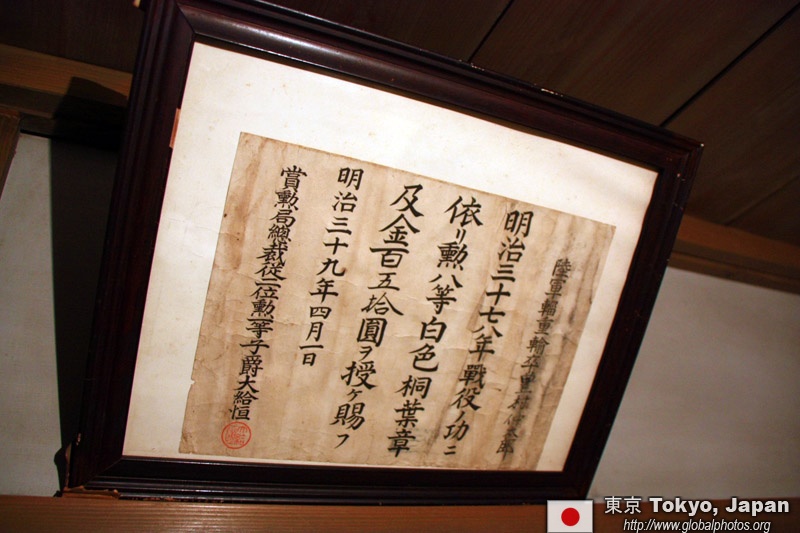 陸軍輜重輸卒
明治三十七八年戰役ノ功ニ
依リ勲八等白色桐葉章
及金百五拾圓ヲ授ケ賜フ
明治三十九年四月一日
賞勲局總裁従二位勲一等子爵大給恒
東京 Tokyo, Japan
http://www.globalphotos.org